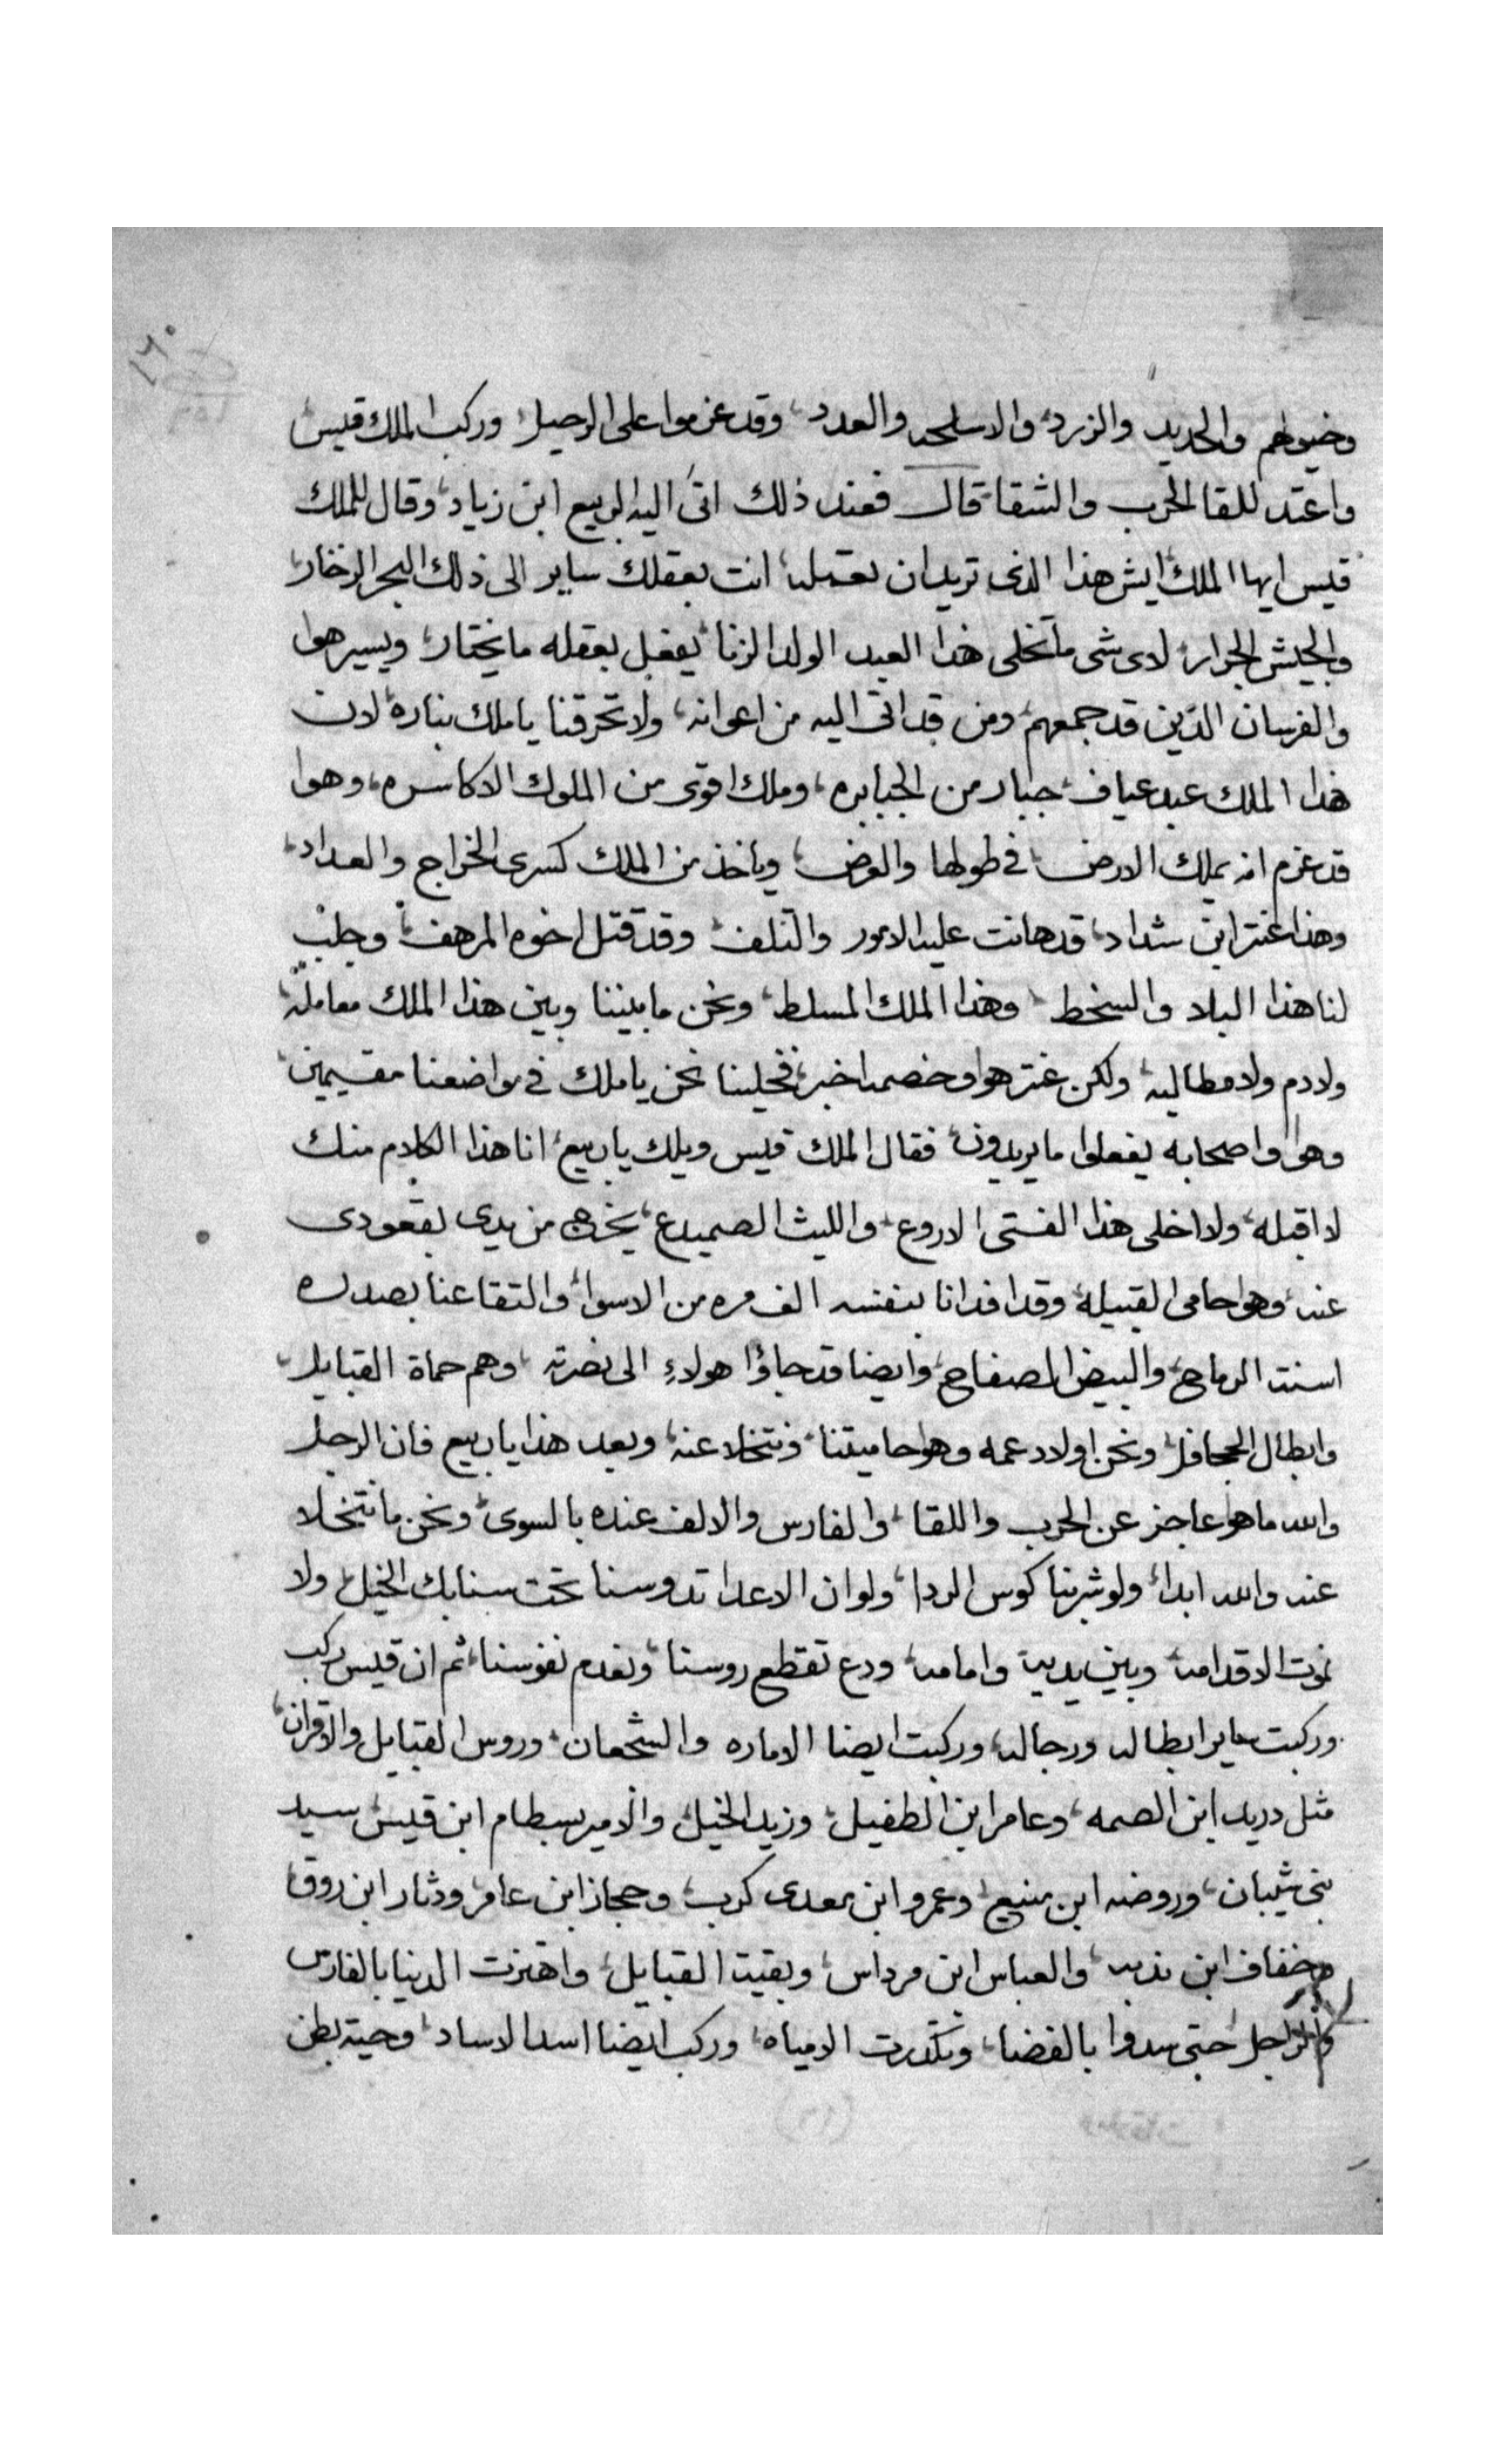 ١٦٠
وخيولهم والحديد والزرد والاسلحه والعدد، وقد عزموا على الرحيل وركب الملك قيس
واعتد للقا الحرب والشقا قال فعند ذلك اتى اليه الربيع ابن زياد، وقال للملك
قيس ايها الملك ايش هذا الذى تريد ان تعمله، انت بعقلك ساير الى ذلك البحر الزخار
والجيش الجرار، لاى شى ما تخلى هذا العبد الولد الزنا يفعل بعقله ما يختار، ويسير هوا
والفرسان الذين قد جمعهم، ومن قد اتى اليه من اعوانه، ولا تحرقنا يا ملك بناره، لان
هذا الملك عبد عياف، جبار من الجبابره، وملك اقوى من الملوك الاكاسره، وهوا
قد عزم انه يملك الارض فى طولها والعرض، وياخذ من الملك كسرى الخراج والعداد،
وهذا عنتر ابن شداد، قد هانت عليه الامور والتلف، وقد قتل اخوه المرهف، وجلب
لنا هذا البلاد والسخط، وهذا الملك المسلط، ونحن ما بيننا وبين هذا الملك معاملة
ولا دم ولا مطالبه، ولكن عنتر هوا وخصمه اخبر، فخلينا نحن يا ملك فى مواضعنا مقيمين
وهوا واصحابه يفعلوا ما يريدون، فقال الملك قيس ويلك يا ربيع، انا هذا الكلام منك
لا اقبله، ولا اخلى هذا الفتى الاروع، والليث الصميدع، يخرج من يدى لقعودى
عنه، وهوا حامى القبيله، وقد افدانا بنفسه الف مره من الاسوا، والتقا عنا بصدره
اسنت الرماح، والبيض الصفاح، وايضا قد جاؤا هولاء الى نصرته، وهم حماة القبايل،
وابطال الجحافل، ونحن اولاد عمه وهوا حاميتنا، فنتخلا عنه، وبعد هذا يا ربيع فان الرجل
والله ما هوا عاجز عن الحرب واللقا، والفارس والالف عنده بالسوى، ونحن ما نتخلا
عنه والله ابدا، ولو شربنا كوس الردا، ولو ان الاعدا تدوسنا تحت سنابك الخيل، ولا
نموت الا قدامه، وبين يديه وامامه، ودع تقطع روسنا، ونعدم نفوسنا، ثم ان قيس ركب
وركبت ساير ابطاله ورجاله، وركبت ايضا الاماره والشجعان، وروس القبايل والاقران،
مثل دريد ابن الصمه، وعامر ابن الطفيل، وزيد الخيل، والامير بسطام ابن قيس، سيد
بنى شيبان، وروضه ابن منيع، وعمرو ابن معدى كرب، وحجاز ابن عامر، ودثار ابن روق،
وخفاف ابن ندبه، والعباس ابن مرداس، وبقيت القبايل، واهتزت الدنيا بالفارس
والراجل، حتى سدوا بالفضا، وتكدرت الامياه، وركب ايضا اسد الاساد، وحية بطن